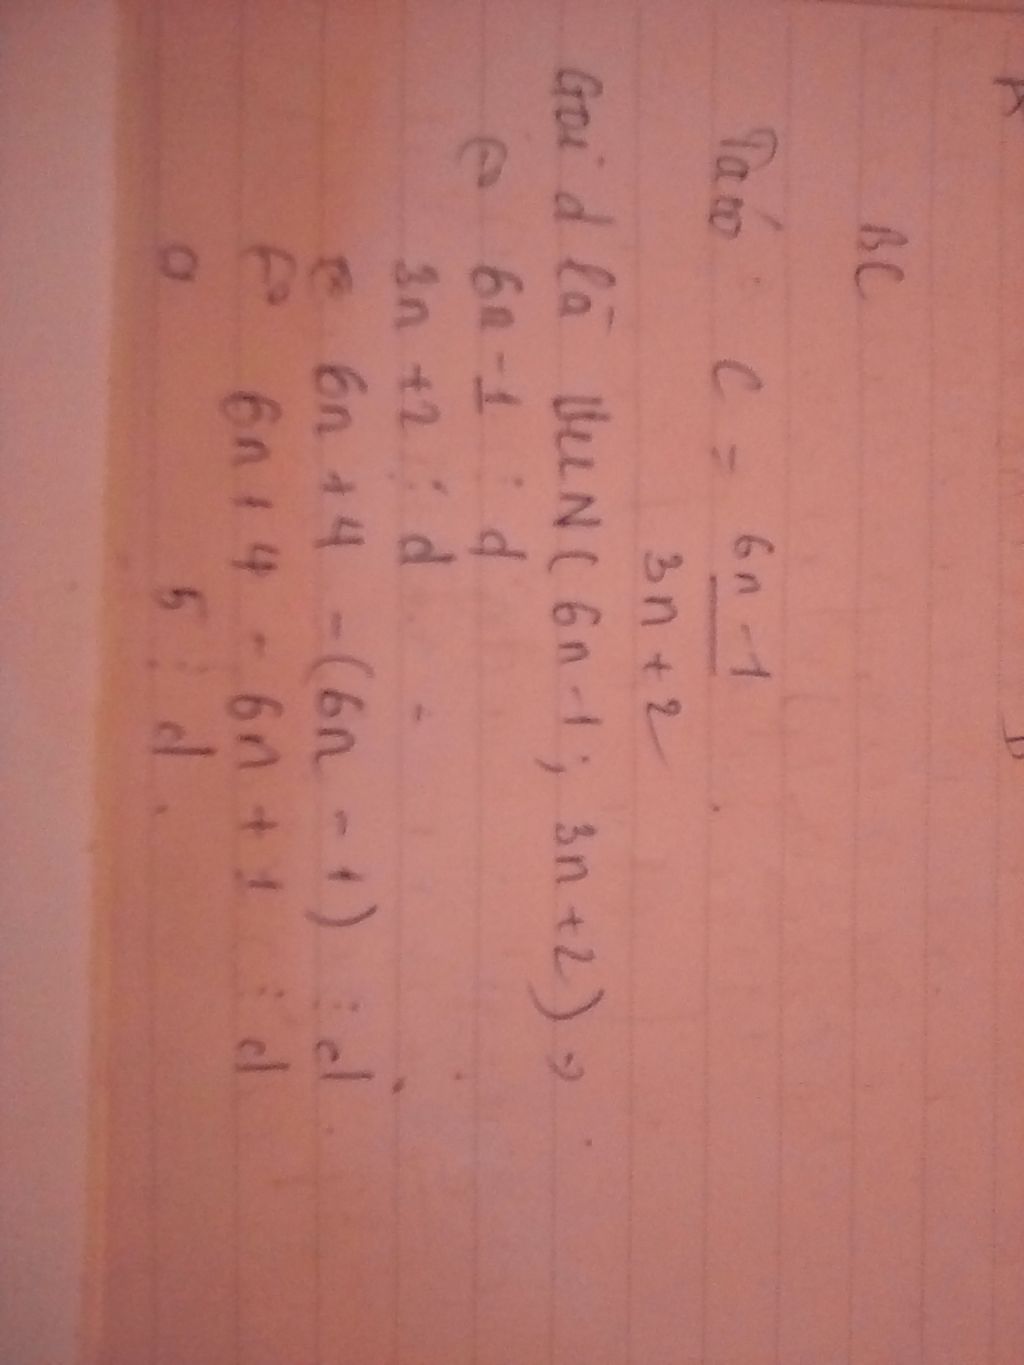 BC
Ta có: C = 6n - 1
3n + 2
Gọi d là ƯCLN ( 6n - 1 ; 3n + 2 ) =>
<=> 6n - 1 ⋮ d
3n + 2 ⋮ d
6n + 4 - (6n - 1) ⋮ d
<=> 6n + 4 - 6n + 1 ⋮ d
0 5 ⋮ d.